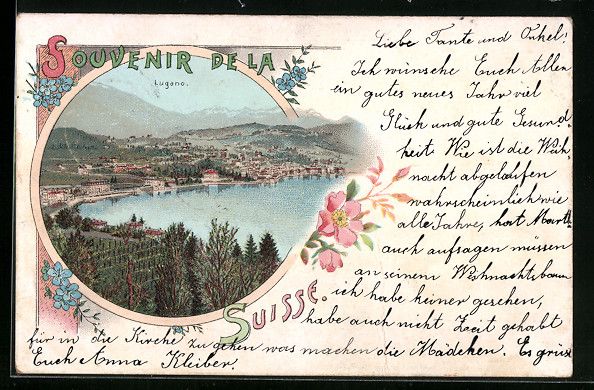 SOUVENIR DE LA
Lugano.
SUISSE.
Liebe Tante und Onkel!
Ich wünsche Euch Allen
ein gutes neues Jahr viel
Glück und gute Gesund-
heit. Wie ist die Weih-
nacht abgelaufen
wahrscheinlich wie
alle Jahre, hat Marth
auch aufsagen müssen
an seinem Weihnachtsbaum
ich habe keiner gesehen,
habe auch nicht Zeit gehabt
für in die Kirche zu gehen was machen die Mädchen. Es grüsst
Euch Anna Kleiber.